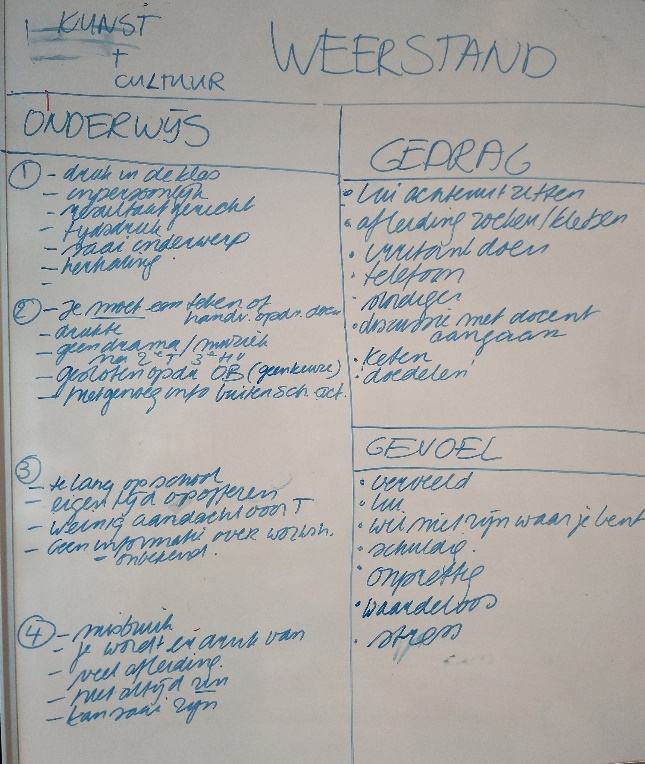 KUNST
+
CULTUUR
WEERSTAND
ONDERWIJS
① - druk in de klas
- onpersoonlijk
- resultaatgericht
- tijdsdruk
- saai onderwerp
- herhaling.
-
② - Je moet een teken of
handv. opdr. doen
- drukte
- geen drama/muziek
na 2e T 3e H
- gesloten opdr OB (geen keuze)
- niet genoeg info buitensch. act.
③
- te lang op school
- eigen tijd opofferen
- weinig aandacht voor T
- Geen informatie over worksh.
- onbekend.
④ - misbruik
- je wordt er druk van
- veel afleiding.
- niet altijd zin
- kan saai zijn
GEDRAG
• lui achteruit zitten
• afleiding zoeken/kletsen
• irritant doen
• telefoon
•
• discussie met docent
aangaan
• keten
• 'doedelen'
GEVOEL
• verveeld
• lui
• wil niet zijn waar je bent
• schuldig.
• onprettig
• waardeloos
• stress